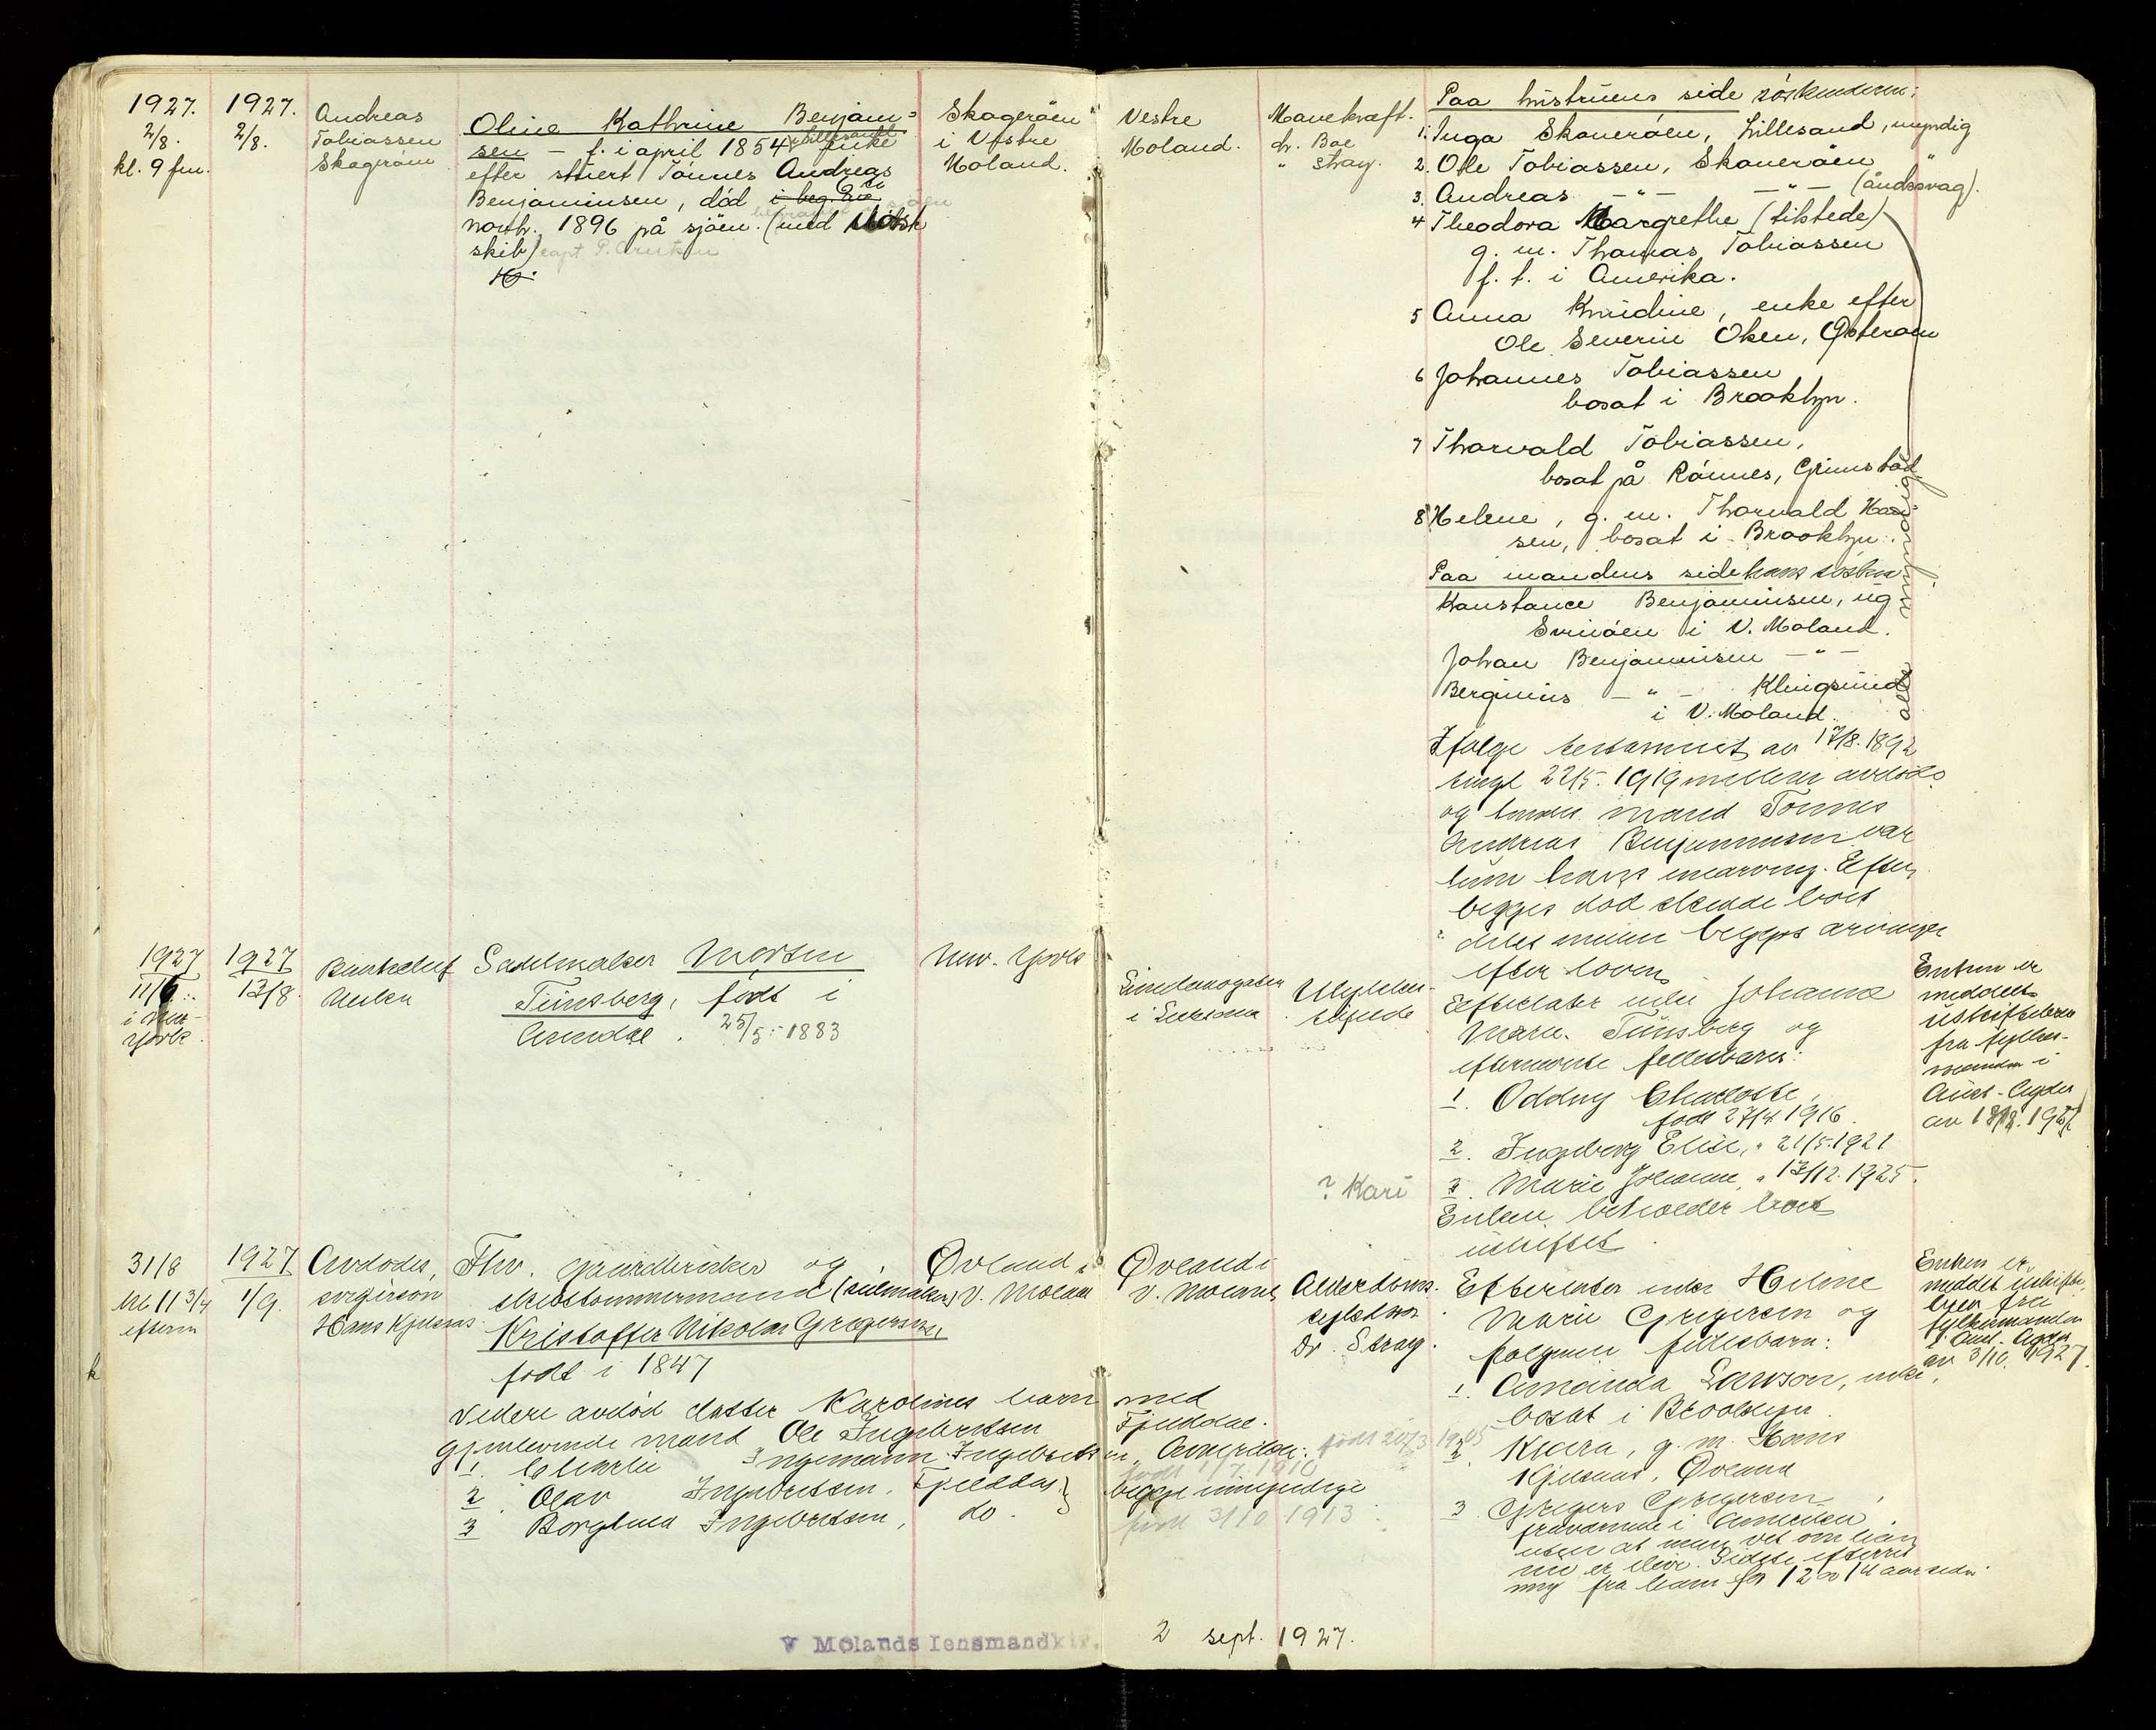 1927.
2/8.
kl. 9 fm.
1927.
2/8.
Andreas
Tobiassen
Skagerøen
Oline Kathrine Benjamin=
sen – f. i april 1854 i Lillesand enke
efter styert Tønnes Andreas
Benjaminsen, død i beg. av
novbr. 1896 på sjøen. (med norsk
skib) capt P.
Skagerøen
i Vestre
Moland.
Vestre
Moland.
Mavekræft.
dr. Boe
" Stray.
Paa hustruens side søskenderen:
1. Inga Skauerøen, Lillesand, myndig
2. Ole Tobiassen, Skauerøen "
3. Andreas – " – – " – (åndssvag).
4 Theodora Margrethe (Sistede)
g. m. Thomas Tobiassen
f. t. i Amerika.
5 Anna Knudine, enke efter
Ole Severin Olsen, Østerøen
6 Johannes Tobiassen
bosat i Brooklyn.
7 Thorvald Tobiassen,
bosat på Rønnes, Grimstad
8 Helene, g. m. Thorvald Han-
sen, bosat i Brooklyn.
Paa mandens side hans søsken
Konstance Benjaminsen, ug.
Svinøen i V. Moland.
Johan Benjaminsen – " –
Berginius – " – Klingsund
i V. Moland.
alle myndige
Ifølge testament av 17/8. 1892
tingl 22/5. 1919 mellem avdøde
og hendes mand Tønnes
Andreas Benjaminsen var
hun hans enearving. Efter
begges død skulde boet
deles mellem begges arvinger
efter loven
1927
11/6.
i New-
York.
1927
13/8.
Enken
Seilmaker Morten
Tünsberg, født i
Arendal. 25/5 - 1883
New. York
i
Efterlater enke Johanne
Marie Tünsberg og
efternevnte fellesbarn:
1. Oddny Charlotte,
født 27/4 1916.
2. Ingeborg Elise, " 21/5. 1921
? Kari
3. Marie Johanne, " 13/12. 1925.
Enken beholder boet
uskiftet.
Enken er
meddelt
uskiftebevi
fra fylkes-
manden i
Aust-Agder
av 1927
31/8
kl. 11 3/4
efterm
1927
1/9.
Avdødes
svigersøn
Hans Kjelsaas
Fhv. gaardbruker og
skibstømmermand (seilmaker)
Kristoffer Nikolai Gregersen,
født i 1847
Øvland i
V. Moland
Øvland i
V. Moland
Alderdoms-
sykdom
Dr. Stray.
Efterlater enke Helene
Marie Gregersen og
følgende fellesbarn:
1. Amanda Lawson, enke,
bosat i Brooklyn.
2. Klara, g. m. Hans
Kjelsaas, Øvland
3. Gregers Gregersen,
fraværende i Amerika,
uten at man vet om han
nu er ilive. Sidste efterret
ning fra ham for 12 a 14 aar siden.
Enken er
meddelt uskifte
bevi fra
fylkesmanden
i Aust-Agder
av 3/10. 1927.
k
Videre avdød datter Karolines barn med
gjenlevende mand Ole Ingebretsen Fjeldal.
1. Charlie Ingemann Ingebretsen, Amerika. født 20/3 1905
2. Olav Ingebretsen, Fjelldal } født 1/7 1910
3. Borghild Ingebretsen, do. begge umyndige
født 3/10 1913
V Molands lensmandktr. 2 sept. 1927.